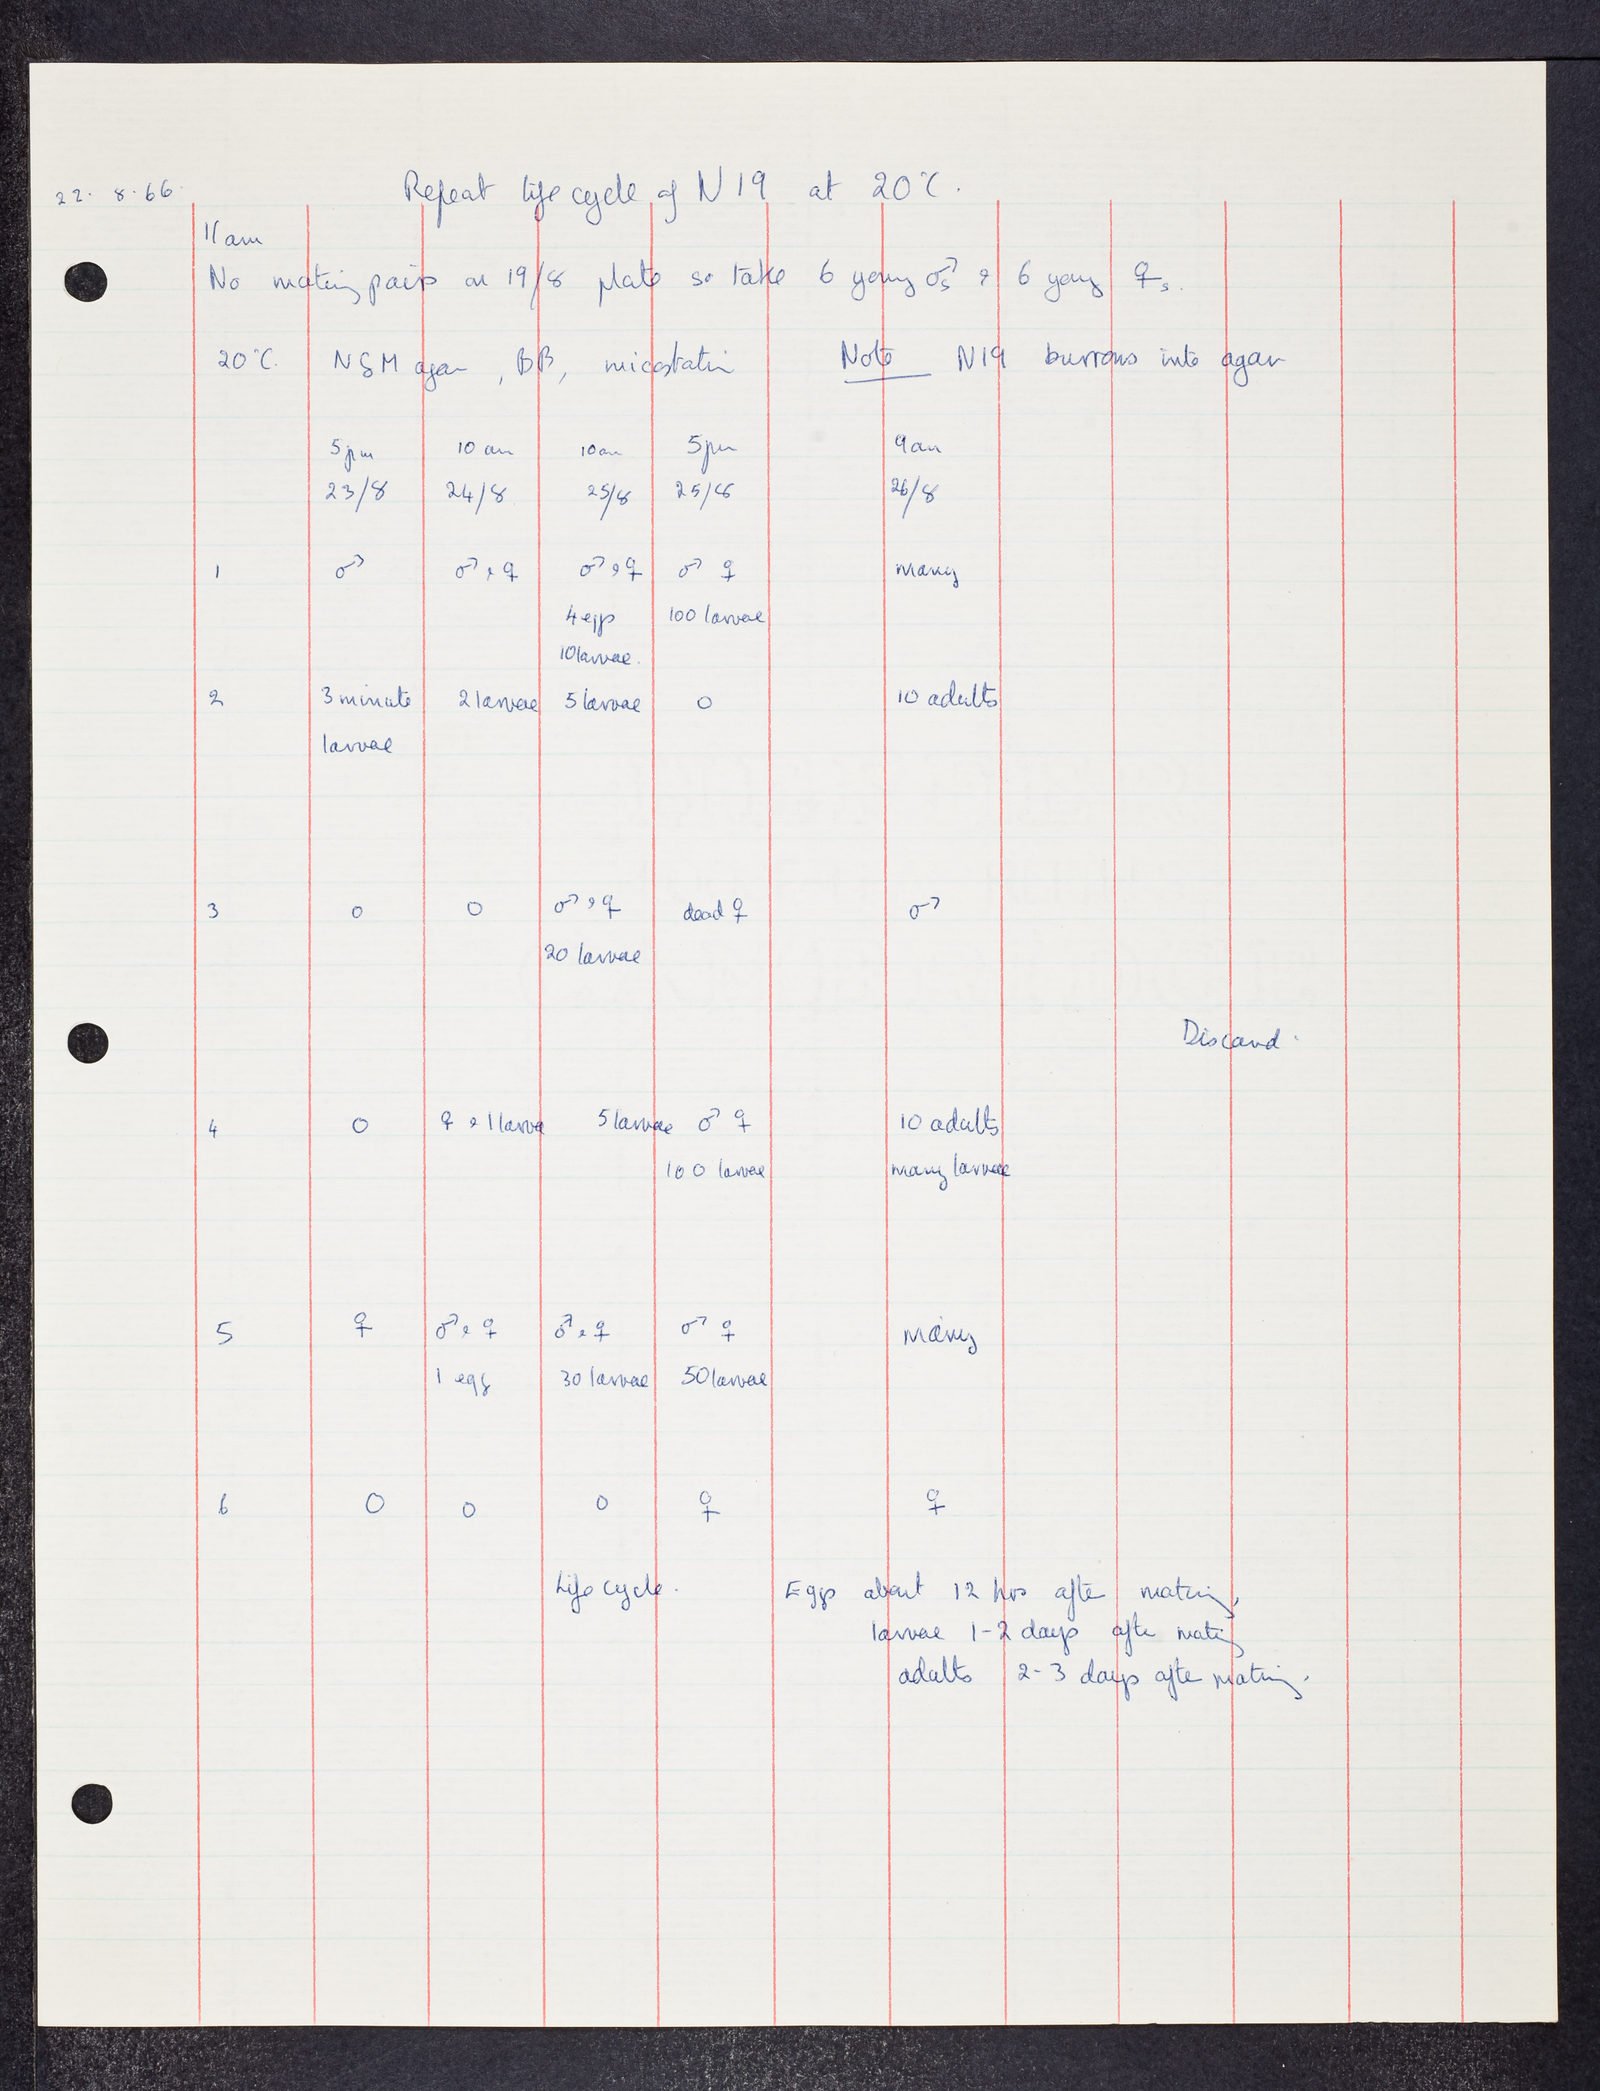 22. 8. 66.
Repeat life cycle of N19 at 20°C.
11am
No mating pairs on 19/8 plate so take 6 young ♂s & 6 young ♀s.
20°C. NGM agar, BB, micostatin Note N19 burrows into agar
5pm 10am 10am 5pm 9am
23/8 24/8 25/8 25/8 26/8
1 ♂ ♂ & ♀ ♂ & ♀ ♂ ♀ many
4 eggs 100 larvae
10 larvae.
2 3 minute 2 larvae 5 larvae 0 10 adults
larvae
3 0 0 ♂ & ♀ dead ♀ ♂
20 larvae
Discard.
4 0 ♀ & 1 larva 5 larvae ♂ ♀ 10 adults
100 larvae many larvae
5 ♀ ♂ & ♀ ♂ & ♀ ♂ ♀ many
1 egg 30 larvae 50 larvae
6 0 0 0 ♀ ♀
Life cycle. Eggs about 12 hrs after mating,
larvae 1-2 days after mating
adults 2-3 days after mating.